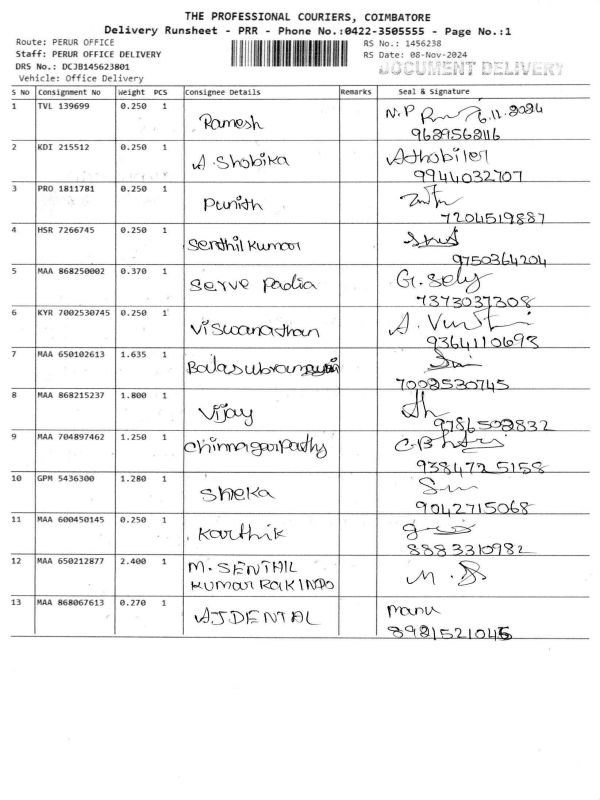 THE PROFESSIONAL COURIERS, COIMBATORE
Delivery Runsheet - PRR - Phone No.:0422-3505555 - Page No.:1
Route: PERUR OFFICE
RS No.: 1456238
Staff: PERUR OFFICE DELIVERY
RS Date: 08-Nov-2024
DRS No.: DCJB145623801
DOCUMENT DELIVERY
Vehicle: Office Delivery
S No Consignment No Weight PCS Consignee Details Remarks Seal & Signature
1 TVL 139699 0.250 1 Ramesh N.P
2 KDI 215512 0.250 1 A. Shobika
9944032707
3 PRO 1811781 0.250 1 Punith
7204519887
4 HSR 7266745 0.250 1 Senthil kumar
9750364204
5 MAA 868250002 0.370 1 Serve Padia G. Sely
7373037308
6 KYR 7002530745 0.250 1 Viswanathan
9364110693
7 MAA 650102613 1.635 1
7002530745
8 MAA 868215237 1.800 1 Vijay
9786502832
9 MAA 704897462 1.250 1
9384725158
10 GPM 5436300 1.280 1 Sheka
9042715068
11 MAA 600450145 0.250 1 Karthik
8883310982
12 MAA 650212877 2.400 1 M. SENTHIL
KUMAR RAKINDO
13 MAA 868067613 0.270 1 AJDENTAL manu